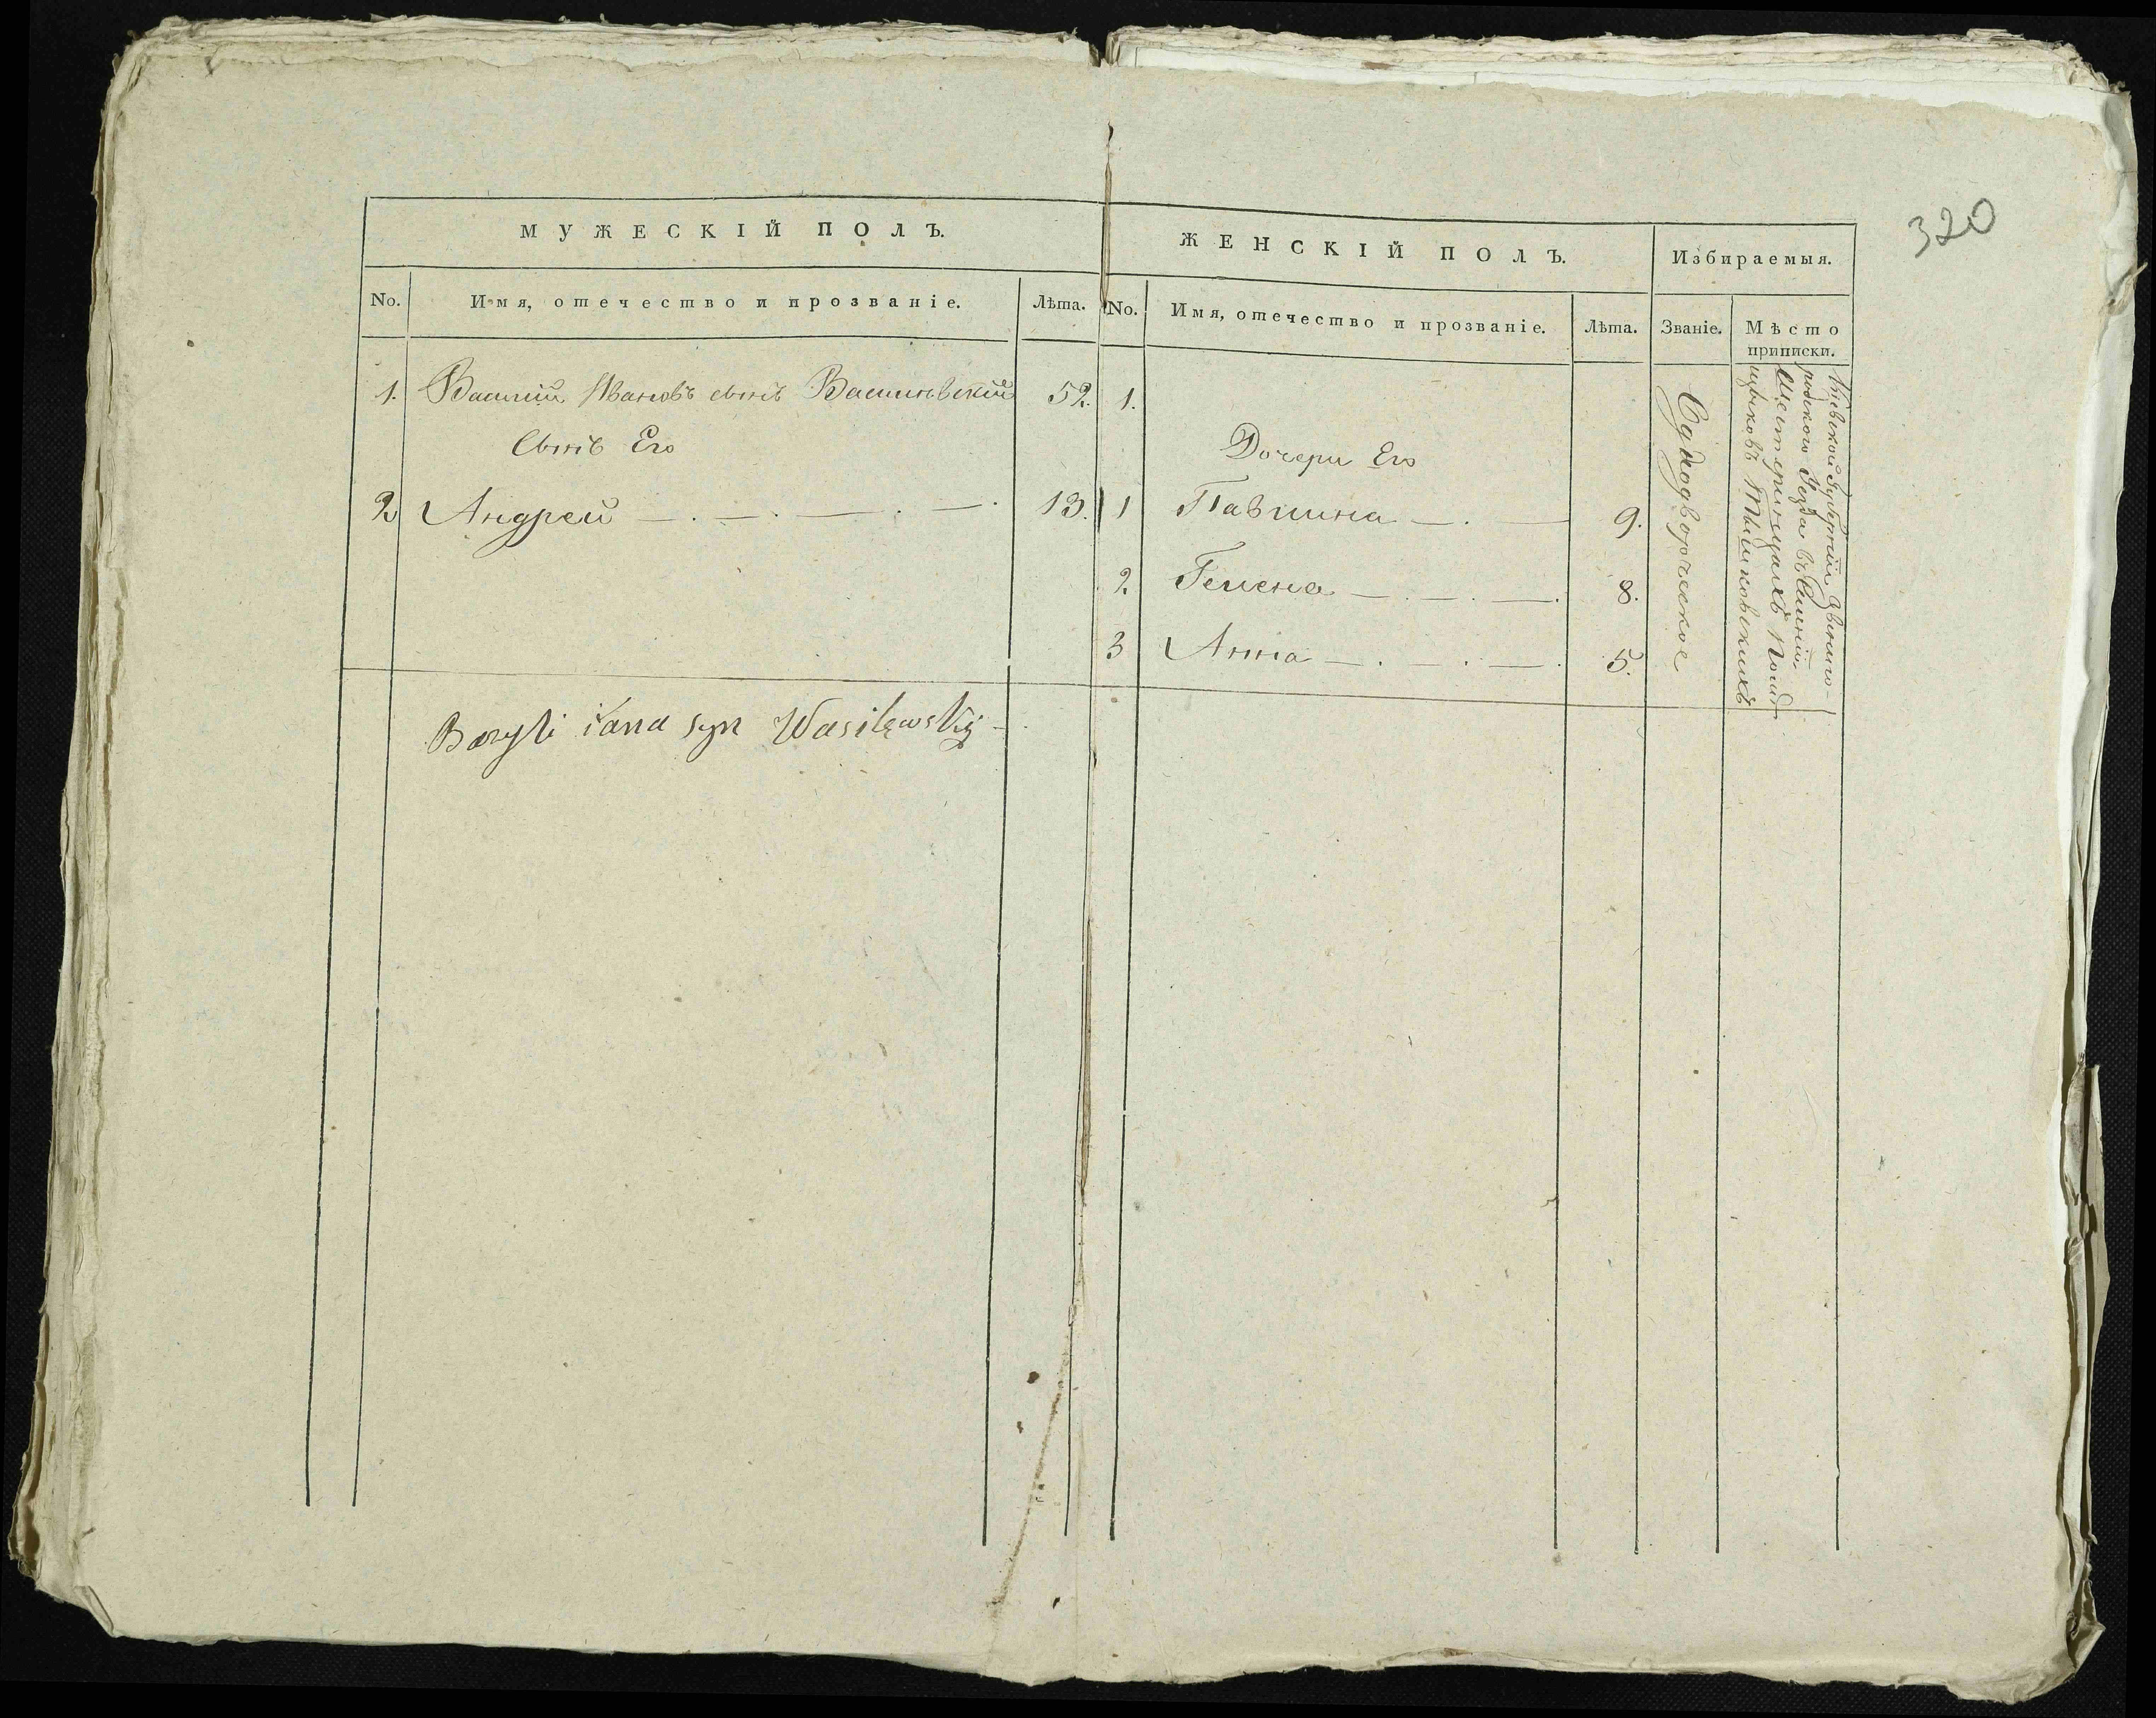 320
МУЖЕСКІЙ ПОЛЪ.
ЖЕНСКІЙ ПОЛЪ.
Избираемыя.
No. Имя, отечество и прозваніе. Лѣта.
No. Имя, отечество и прозваніе. Лѣта.
Званіе. Мѣсто приписки.
1. Василій Ивановъ сынъ Василевскій 52. 1.
Сынъ Его
Дочери Его
2 Андрей 13. 1 Павлина 9.
2. Гелена 8.
3 Анна 5.
Однодворческое
Кіевской Губерніи Звениго-
родскаго Уезда въ Имѣніи
Шестеринцахъ Помѣ-
щиковъ Тышковскихъ
Bazyli iana syn Wasilewsky